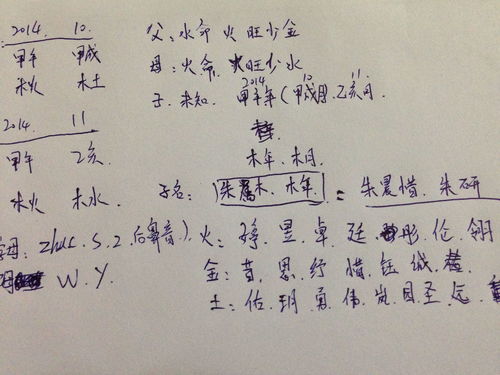 2014. 10.
甲午 甲戌
木火 木土
2014. 11
甲午 乙亥
木火 木水
父:水命 火旺少金
母:火命 火旺少水
子:未知. 2014 甲午年(10 甲戌月. 11 乙亥月.
木年.木月
子名: 朱属木.木年. = 朱晨惜.朱研
字母: zhuc.s.z.后鼻音) 火: 昱.卓.廷.彤.伦.翎
W.Y. 金: 思.纾.惜.钰.诚.
土: 佑.玥.勇.伟.岚.圣.远.